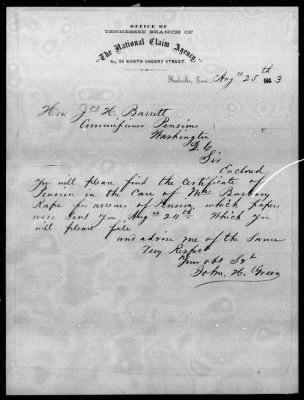 OFFICE OF
TENNESSEE BRANCH OF
"The National Claim Agency,"
No. 50 NORTH CHERRY STREET.
Nashville, Tenn., Augt 25th 1863
Hon Jos H. Barrett
Commissioner Pensions
Washington
D. C.
Sir
Enclosed
You will please find the Certificate of
Pension in the Case of Mrs Barbary
for arrears of Pension, which papers
were sent you Augt 24th. Which you
will please file
and advise me of the Same
Very Respect
Your obt Svt
John. H.